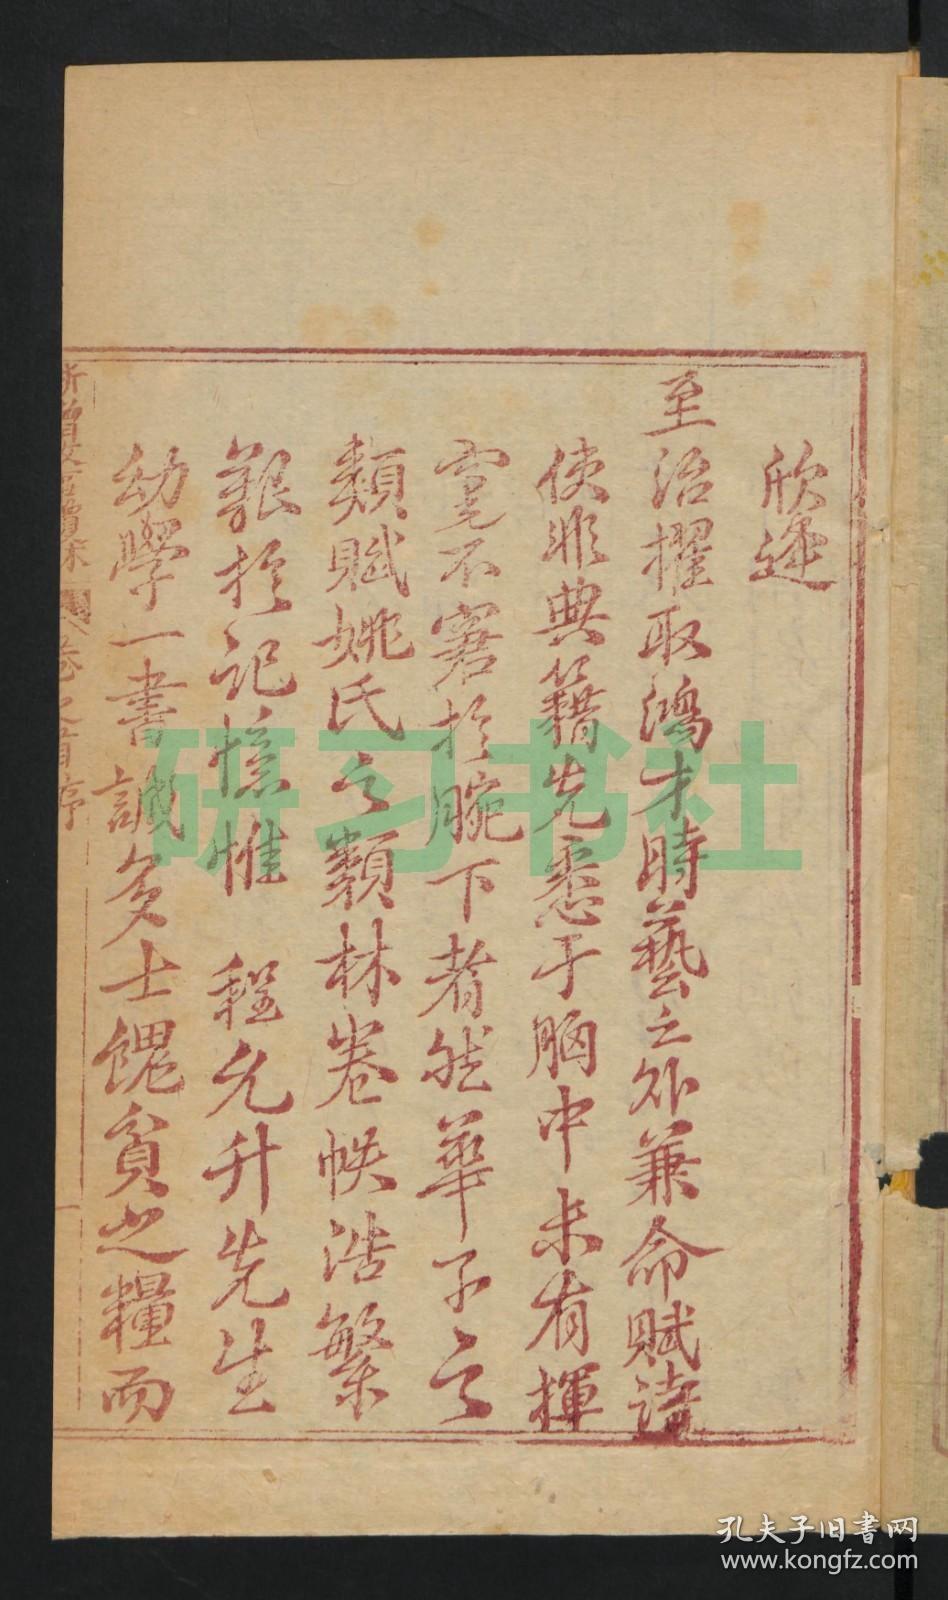 欣逢
至治擢取鴻才時藝之外兼命賦詩
使非典籍先悉于胸中未有揮
毫不窘於腕下者然華子之
類賦姚氏之類林卷帙浩繁
艱於记憶惟 程允升先生
幼學一書誠多士餽貧之糧而
卷之首序
一
研习书社
孔夫子旧书网
www.kongfz.com